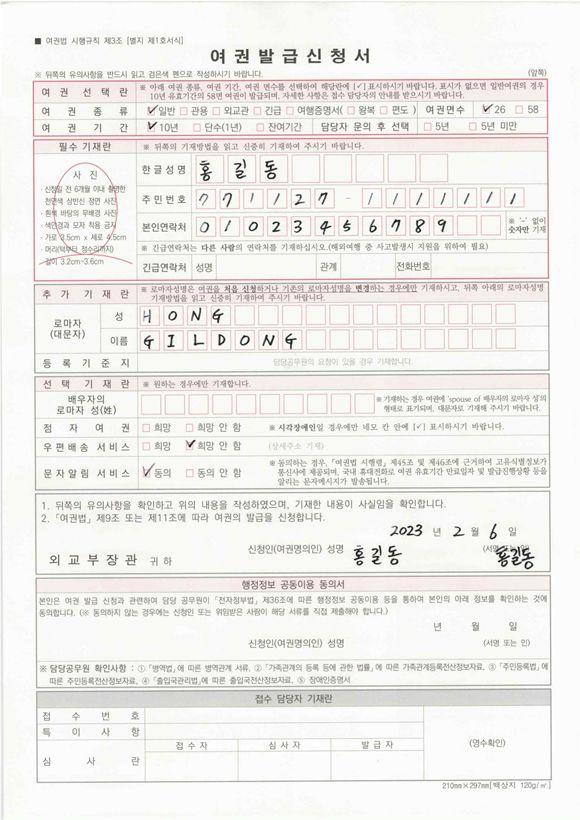 ■ 여권법 시행규칙 제3조 [별지 제1호서식]
여권발급신청서
※ 뒤쪽의 유의사항을 반드시 읽고 검은색 펜으로 작성하시기 바랍니다. (앞쪽)
여 권 선 택 란 ※ 아래 여권 종류, 여권 기간, 여권 면수를 선택하여 해당란에 [✓] 표시하시기 바랍니다. 표시가 없으면 일반여권의 경우
10년 유효기간의 58면 여권이 발급되며, 자세한 사항은 접수 담당자의 안내를 받으시기 바랍니다.
여 권 종 류 ☑ 일반 □ 관용 □ 외교관 □ 긴급 □ 여행증명서(□ 왕복 □ 편도) 여권면수 ☑ 26 □ 58
여 권 기 간 ☑ 10년 □ 단수(1년) □ 잔여기간 담당자 문의 후 선택 □ 5년 □ 5년 미만
필수 기재란 ※ 뒤쪽의 기재방법을 읽고 신중히 기재하여 주시기 바랍니다.
사 진
· 신청일 전 6개월 이내 촬영한
천연색 상반신 정면 사진
· 흰색 바탕의 무배경 사진
· 색안경과 모자 착용 금지
· 가로 3.5cm x 세로 4.5cm
· 머리(턱부터 정수리까지)
길이 3.2cm~3.6cm
한글성명 홍 길 동
주민번호 7 7 1 1 2 7 - 1 1 1 1 1 1 1
본인연락처 0 1 0 2 3 4 5 6 7 8 9 ※ '-' 없이
숫자만 기재
※ 긴급연락처는 다른 사람의 연락처를 기재하십시오.(해외여행 중 사고발생시 지원을 위하여 필요)
긴급연락처 성명 관계 전화번호
추 가 기 재 란 ※ 로마자성명은 여권을 처음 신청하거나 기존의 로마자성명을 변경하는 경우에만 기재하시고, 뒤쪽 아래의 로마자성명
기재방법을 읽고 신중히 기재하여 주시기 바랍니다.
로마자
(대문자)
성 H O N G
이름 G I L D O N G
등 록 기 준 지 담당공무원의 요청이 있을 경우 기재합니다.
선 택 기 재 란 ※ 원하는 경우에만 기재합니다.
배우자의
로마자 성(姓)
※ 기재하는 경우 여권에 'spouse of 배우자의 로마자 성'의
형태로 표기되며, 대문자로 기재해 주시기 바랍니다.
점 자 여 권 □ 희망 □ 희망 안 함 ※ 시각장애인일 경우에만 네모 칸 안에 [✓] 표시하시기 바랍니다.
우편배송 서비스 □ 희망 ☑ 희망 안 함 (상세주소 기재)
문자알림 서비스 ☑ 동의 □ 동의 안 함 ※ 동의하는 경우, 「여권법 시행령」 제45조 및 제46조에 근거하여 고유식별정보가
통신사에 제공되며, 국내 휴대전화로 여권 유효기간 만료일자 및 발급진행상황 등을
알리는 문자메시지가 발송됩니다.
1. 뒤쪽의 유의사항을 확인하고 위의 내용을 작성하였으며, 기재한 내용이 사실임을 확인합니다.
2. 「여권법」 제9조 또는 제11조에 따라 여권의 발급을 신청합니다.
2023 년 2 월 6 일
신청인(여권명의인) 성명 홍길동 (서명 또는 인) 홍길동
외교부장관 귀하
행정정보 공동이용 동의서
본인은 여권 발급 신청과 관련하여 담당 공무원이 「전자정부법」 제36조에 따른 행정정보 공동이용 등을 통하여 본인의 아래 정보를 확인하는 것에
동의합니다. (※ 동의하지 않는 경우에는 신청인 또는 위임받은 사람이 해당 서류를 직접 제출해야 합니다.)
년 월 일
신청인(여권명의인) 성명 (서명 또는 인)
※ 담당공무원 확인사항 : ① 「병역법」에 따른 병역관계 서류. ② 「가족관계의 등록 등에 관한 법률」에 따른 가족관계등록전산정보자료. ③ 「주민등록법」에
따른 주민등록전산정보자료. ④ 「출입국관리법」에 따른 출입국전산정보자료. ⑤ 장애인증명서
접수 담당자 기재란
접 수 번 호
특 이 사 항
심 사 란 접 수 자 심 사 자 발 급 자 (영수확인)
210mm×297mm[백상지 120g/㎡]